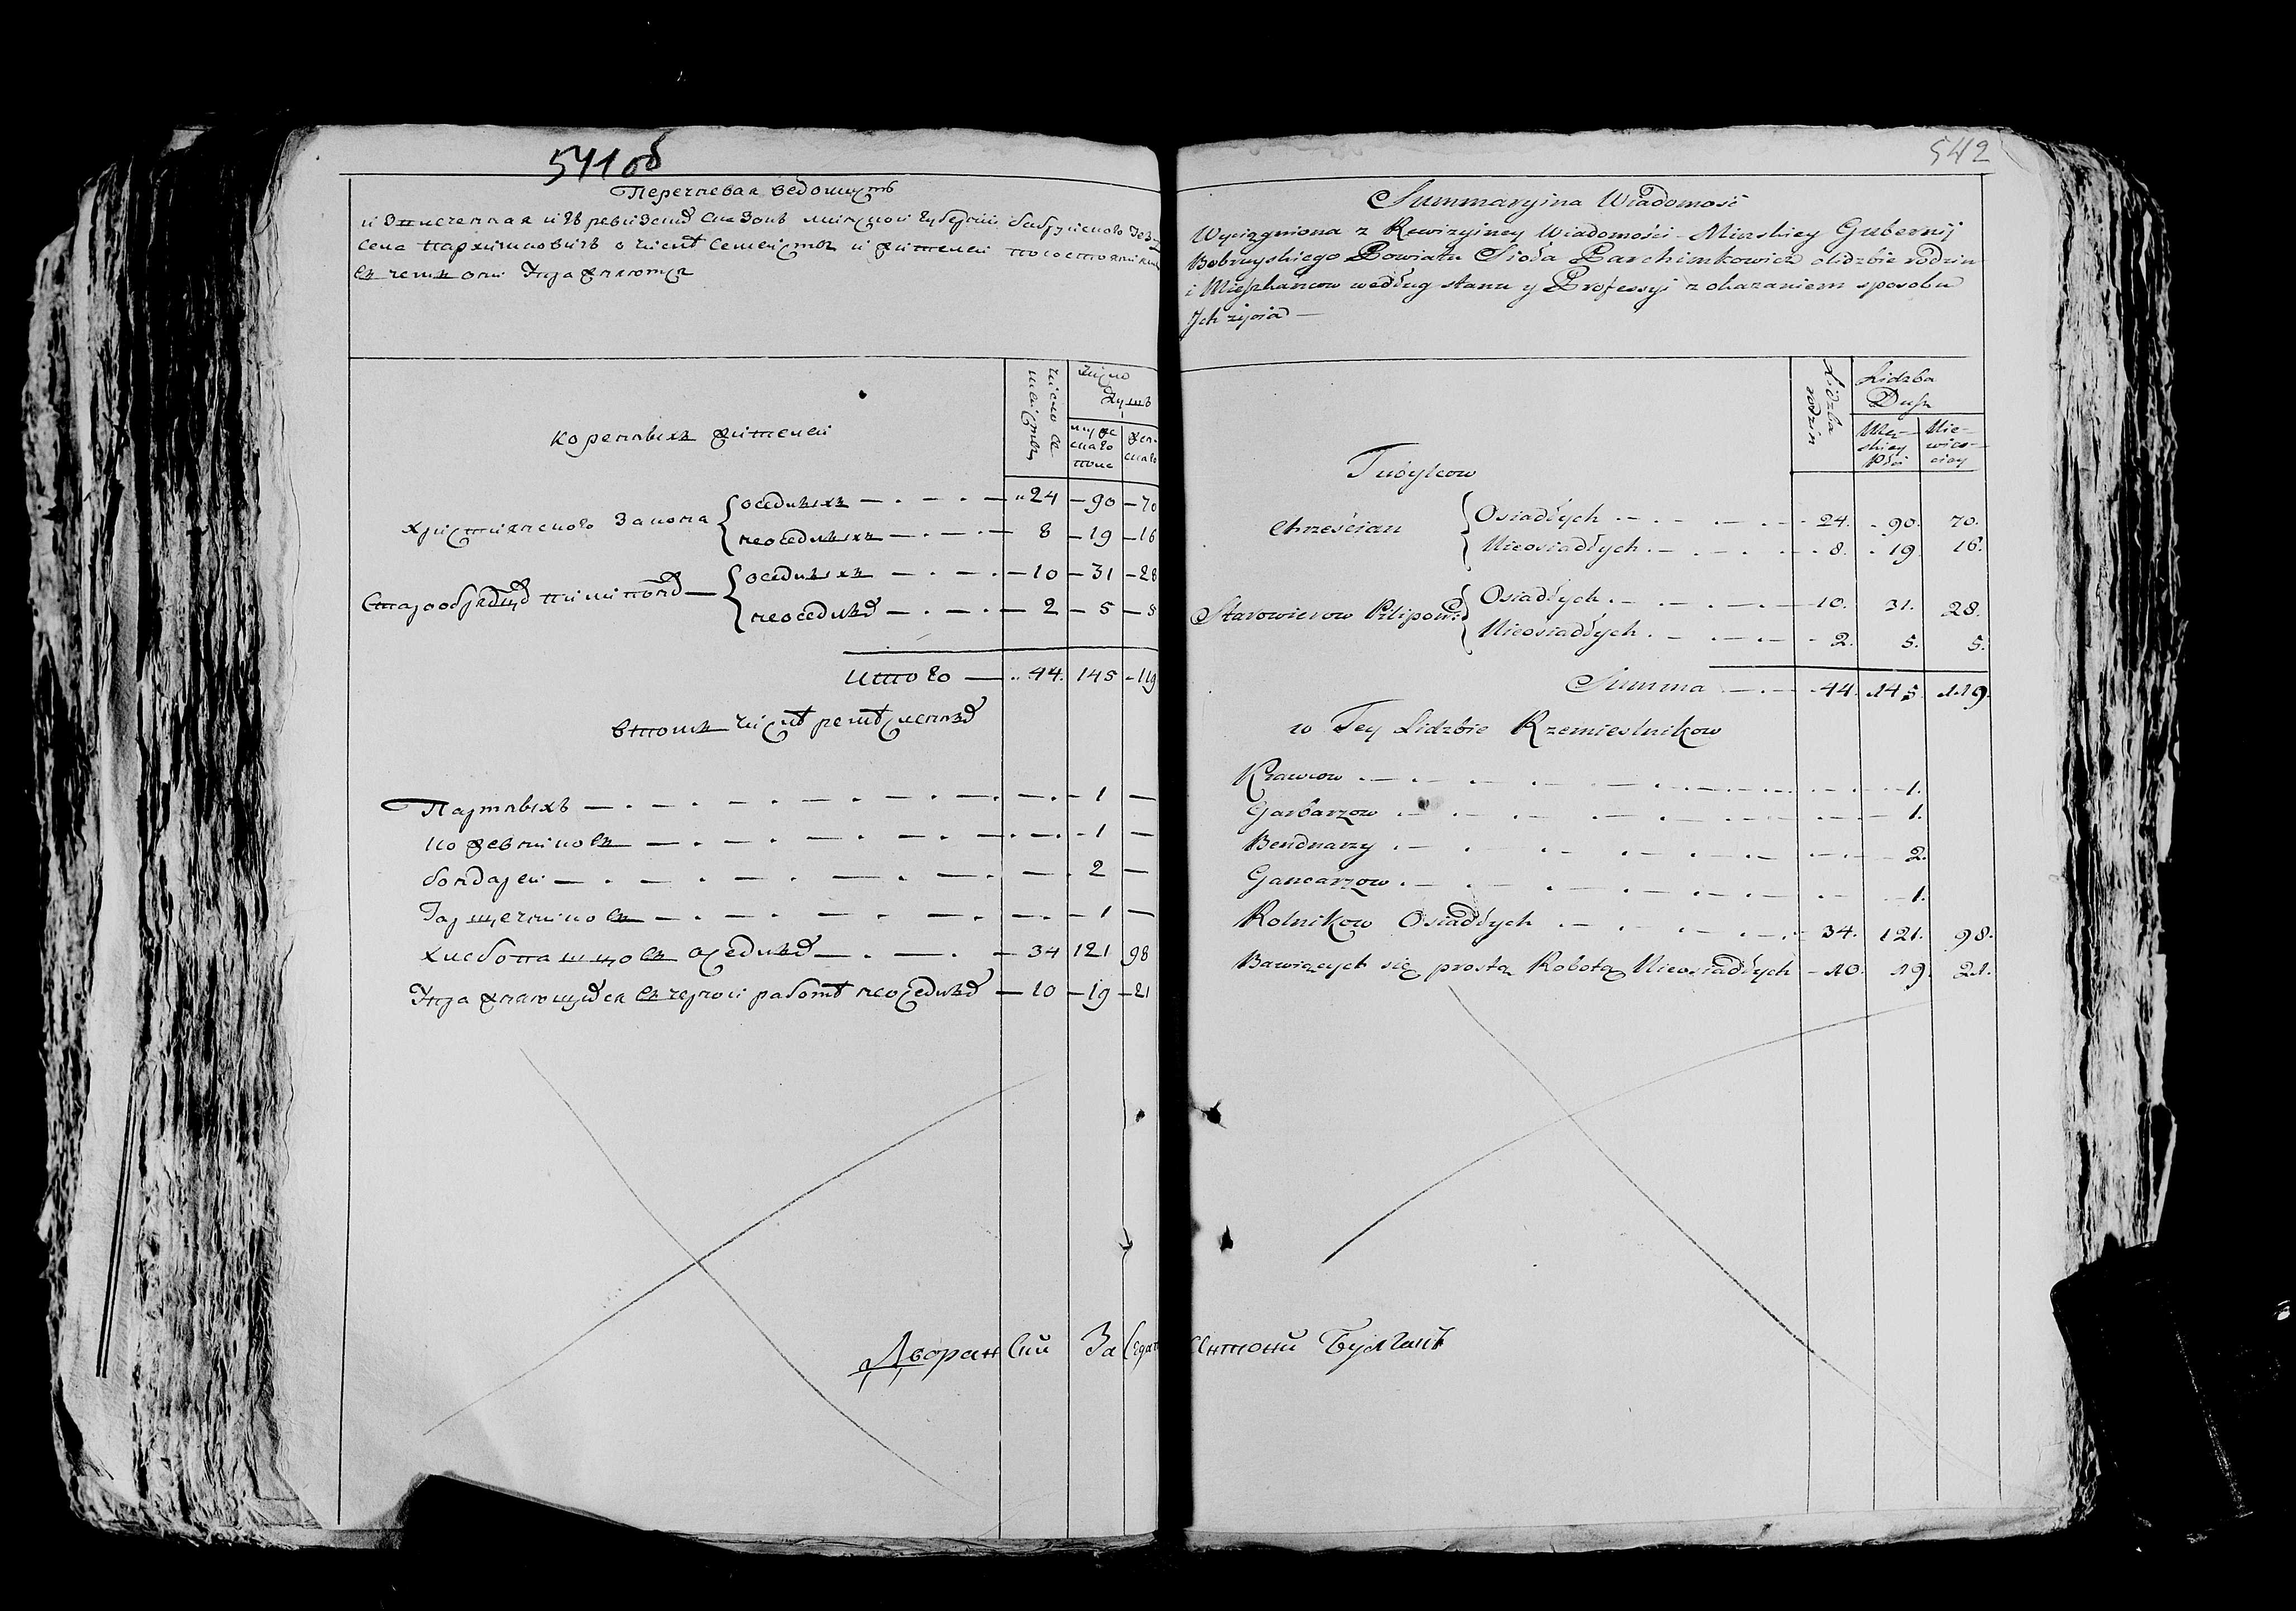 541 об
Перечневая ведомость
и Зписченная из ревизских Сказокъ минской губернии бобруйского
села пархимковичь о числѣ Семействъ и жителей по состоянию
въ чемъ они Упражняются
Коренныхъ жителей
число семействъ
число душъ
мужескаго полу
женскаго
Християнского Закона { оседлыхъ 24 90 70
неоседлыхъ 8 19 16
Старообрядцовъ пилипоновъ { оседлыхъ 10 31 28
неоседлыхъ 2 5 5
Итого 44. 145 119
втомъ числѣ ремѣсленныхъ
Партныхъ 1
кожевниковъ 1
бондарей 2
Гаршечниковъ 1
хлебопашцовъ оседлыхъ 34 121 98
Упражняющихся въ черной работѣ неоседлыхъ 10 19 21
Дворянский Заседат
542
Summaryjna Wiadomość
Wyciągniona z Rewizyjney Wiadomości Minskiey Gubernij
Bobruyskiego Powiatu Sioła Parchimkowicz o lidzbie rodzin
i Mieszkańcow według stanu y Professyi z okazaniem sposobu
Jch życia —
Lidzba rodzin
Lidzba Dusz
Męskiey Płci
Niewieściey
Tubylcow
Chrześcian { Osiadłych 24. 90. 70.
Nieosiadłych 8. 19. 16.
Starowierow Pilipow { Osiadłych 10. 31. 28.
Nieosiadłych 2. 5. 5.
Summa 44. 145. 119.
w Tey Lidzbie Rzemieslnikow
Krawcow 1.
Garbarzow 1.
Bendnarzy 2.
Gancarzow 1.
Rolnikow Osiadłych 34. 121. 98.
Bawiących się prostą Robotą Nieosiadłych 10. 19. 21.
Антони Булгакъ